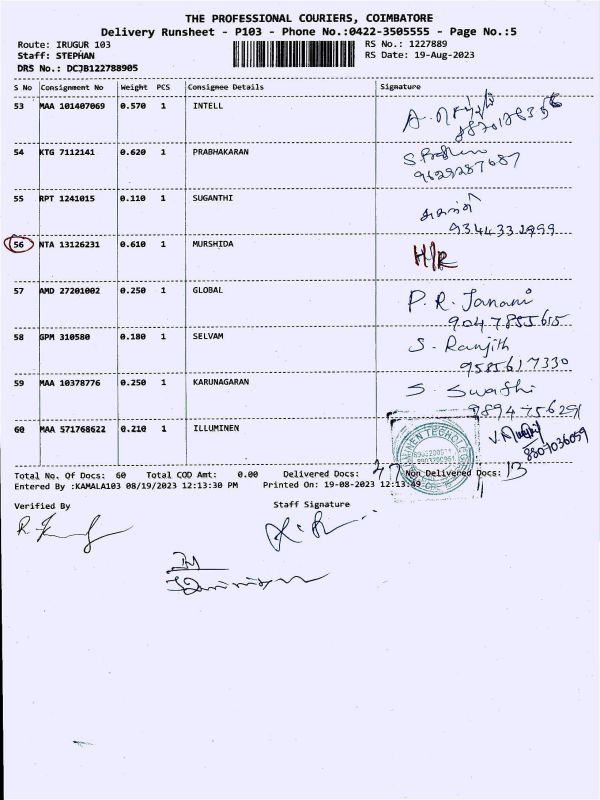 THE PROFESSIONAL COURIERS, COIMBATORE
Delivery Runsheet - P103 - Phone No.:0422-3505555 - Page No.:5
Route: IRUGUR 103 RS No.: 1227889
Staff: STEPHAN RS Date: 19-Aug-2023
DRS No.: DCJB122788905
S No Consignment No Weight PCS Consignee Details Signature
53 MAA 101407069 0.570 1 INTELL
54 KTG 7112141 0.620 1 PRABHAKARAN
9629287687
55 RPT 1241015 0.110 1 SUGANTHI
9344332999
56 NTA 13126231 0.610 1 MURSHIDA H/R
57 AMD 27201002 0.250 1 GLOBAL P. R. Janani
9047855615
58 GPM 310580 0.180 1 SELVAM S. Ranjith
9585617330
59 MAA 10378776 0.250 1 KARUNAGARAN S. Swathi
9894756291
60 MAA 571768622 0.210 1 ILLUMINEN
8807036059
Total No. Of Docs: 60 Total COD Amt: 0.00 Delivered Docs: Non Delivered Docs: 13
Entered By :KAMALA103 08/19/2023 12:13:30 PM Printed On: 19-08-2023 12:13:49
Verified By Staff Signature